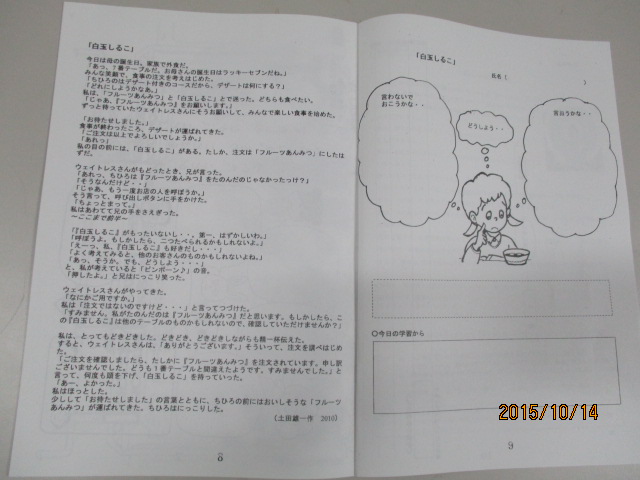 「白玉しるこ」
今日は母の誕生日。家族で外食だ。
「あっ、７番テーブルだ。お母さんの誕生日はラッキーセブンだね。」
みんな笑顔で、食事の注文を考えはじめた。
「ちひろのはデザート付きのコースだから、デザートは何にする？」
「どれにしようかなあ。」
私は、「フルーツあんみつ」と「白玉しるこ」とで迷った。どちらも食べたい。
「じゃあ、『フルーツあんみつ』をお願いします。」
ずっと待っていたウェイトレスさんにそうお願いして、みんなで楽しい食事を始めた。
「お待たせしました。」
食事が終わったころ、デザートが運ばれてきた。
「ご注文は以上でよろしいでしょうか。」
「あれっ」
私の目の前には、「白玉しるこ」がある。たしか、注文は「フルーツあんみつ」にしたは
ずだ。
ウェイトレスさんがもどったとき、兄が言った。
「あれっ、ちひろは『フルーツあんみつ』をたのんだのじゃなかったっけ？」
「そうなんだけど・・」
「じゃあ、もう一度お店の人を呼ぼうか。」
そう言って、呼び出しボタンに手をかけた。
「ちょっとまって。」
私はあわてて兄の手をさえぎった。
～ここまで前半～
「『白玉しるこ』がもったいないし・・。第一、はずかしいわ。」
「呼ぼうよ。もしかしたら、二つたべられるかもしれないよ。」
「えーっ、私、『白玉しるこ』も好きだし・・・」
「よく考えてみると、他のお客さんのものかもしれないよね。」
「あっ、そうか。でも、どうしよう・・・」
と、私が考えていると「ピンポーン♪」の音。
「押したよ。」と兄はにっこり笑った。
ウェイトレスさんがやってきた。
「なにかご用ですか。」
私は「注文ではないのですけど・・・」と言ってつづけた。
「すみません。私がたのんだのは『フルーツあんみつ』だと思います。もしかしたら、こ
の『白玉しるこ』は他のテーブルのものかもしれないので、確認していただけませんか？」
私は、とってもどきどきした。どきどき、どきどきしながらも精一杯伝えた。
すると、ウェイトレスさんは、「ありがとうございます。」そういって、注文を調べはじめ
た。
「ご注文を確認しましたら、たしかに『フルーツあんみつ』を注文されています。申し訳
ございませんでした。どうも１番テーブルと間違えたようです。すみませんでした。」と
言って、何度も頭を下げ、「白玉しるこ」を持っていった。
「あー、よかった。」
私はほっとした。
少しして「お待たせしました」の言葉とともに、ちひろの前にはおいしそうな「フルーツ
あんみつ」が運ばれてきた。ちひろはにっこりした。
（土田雄一作　2010）
8
「白玉しるこ」
氏名（　　　　　　　　）
言わないで
おこうかな・・
どうしよう・・
言おうかな・・
○今日の学習から
9
2015/10/14